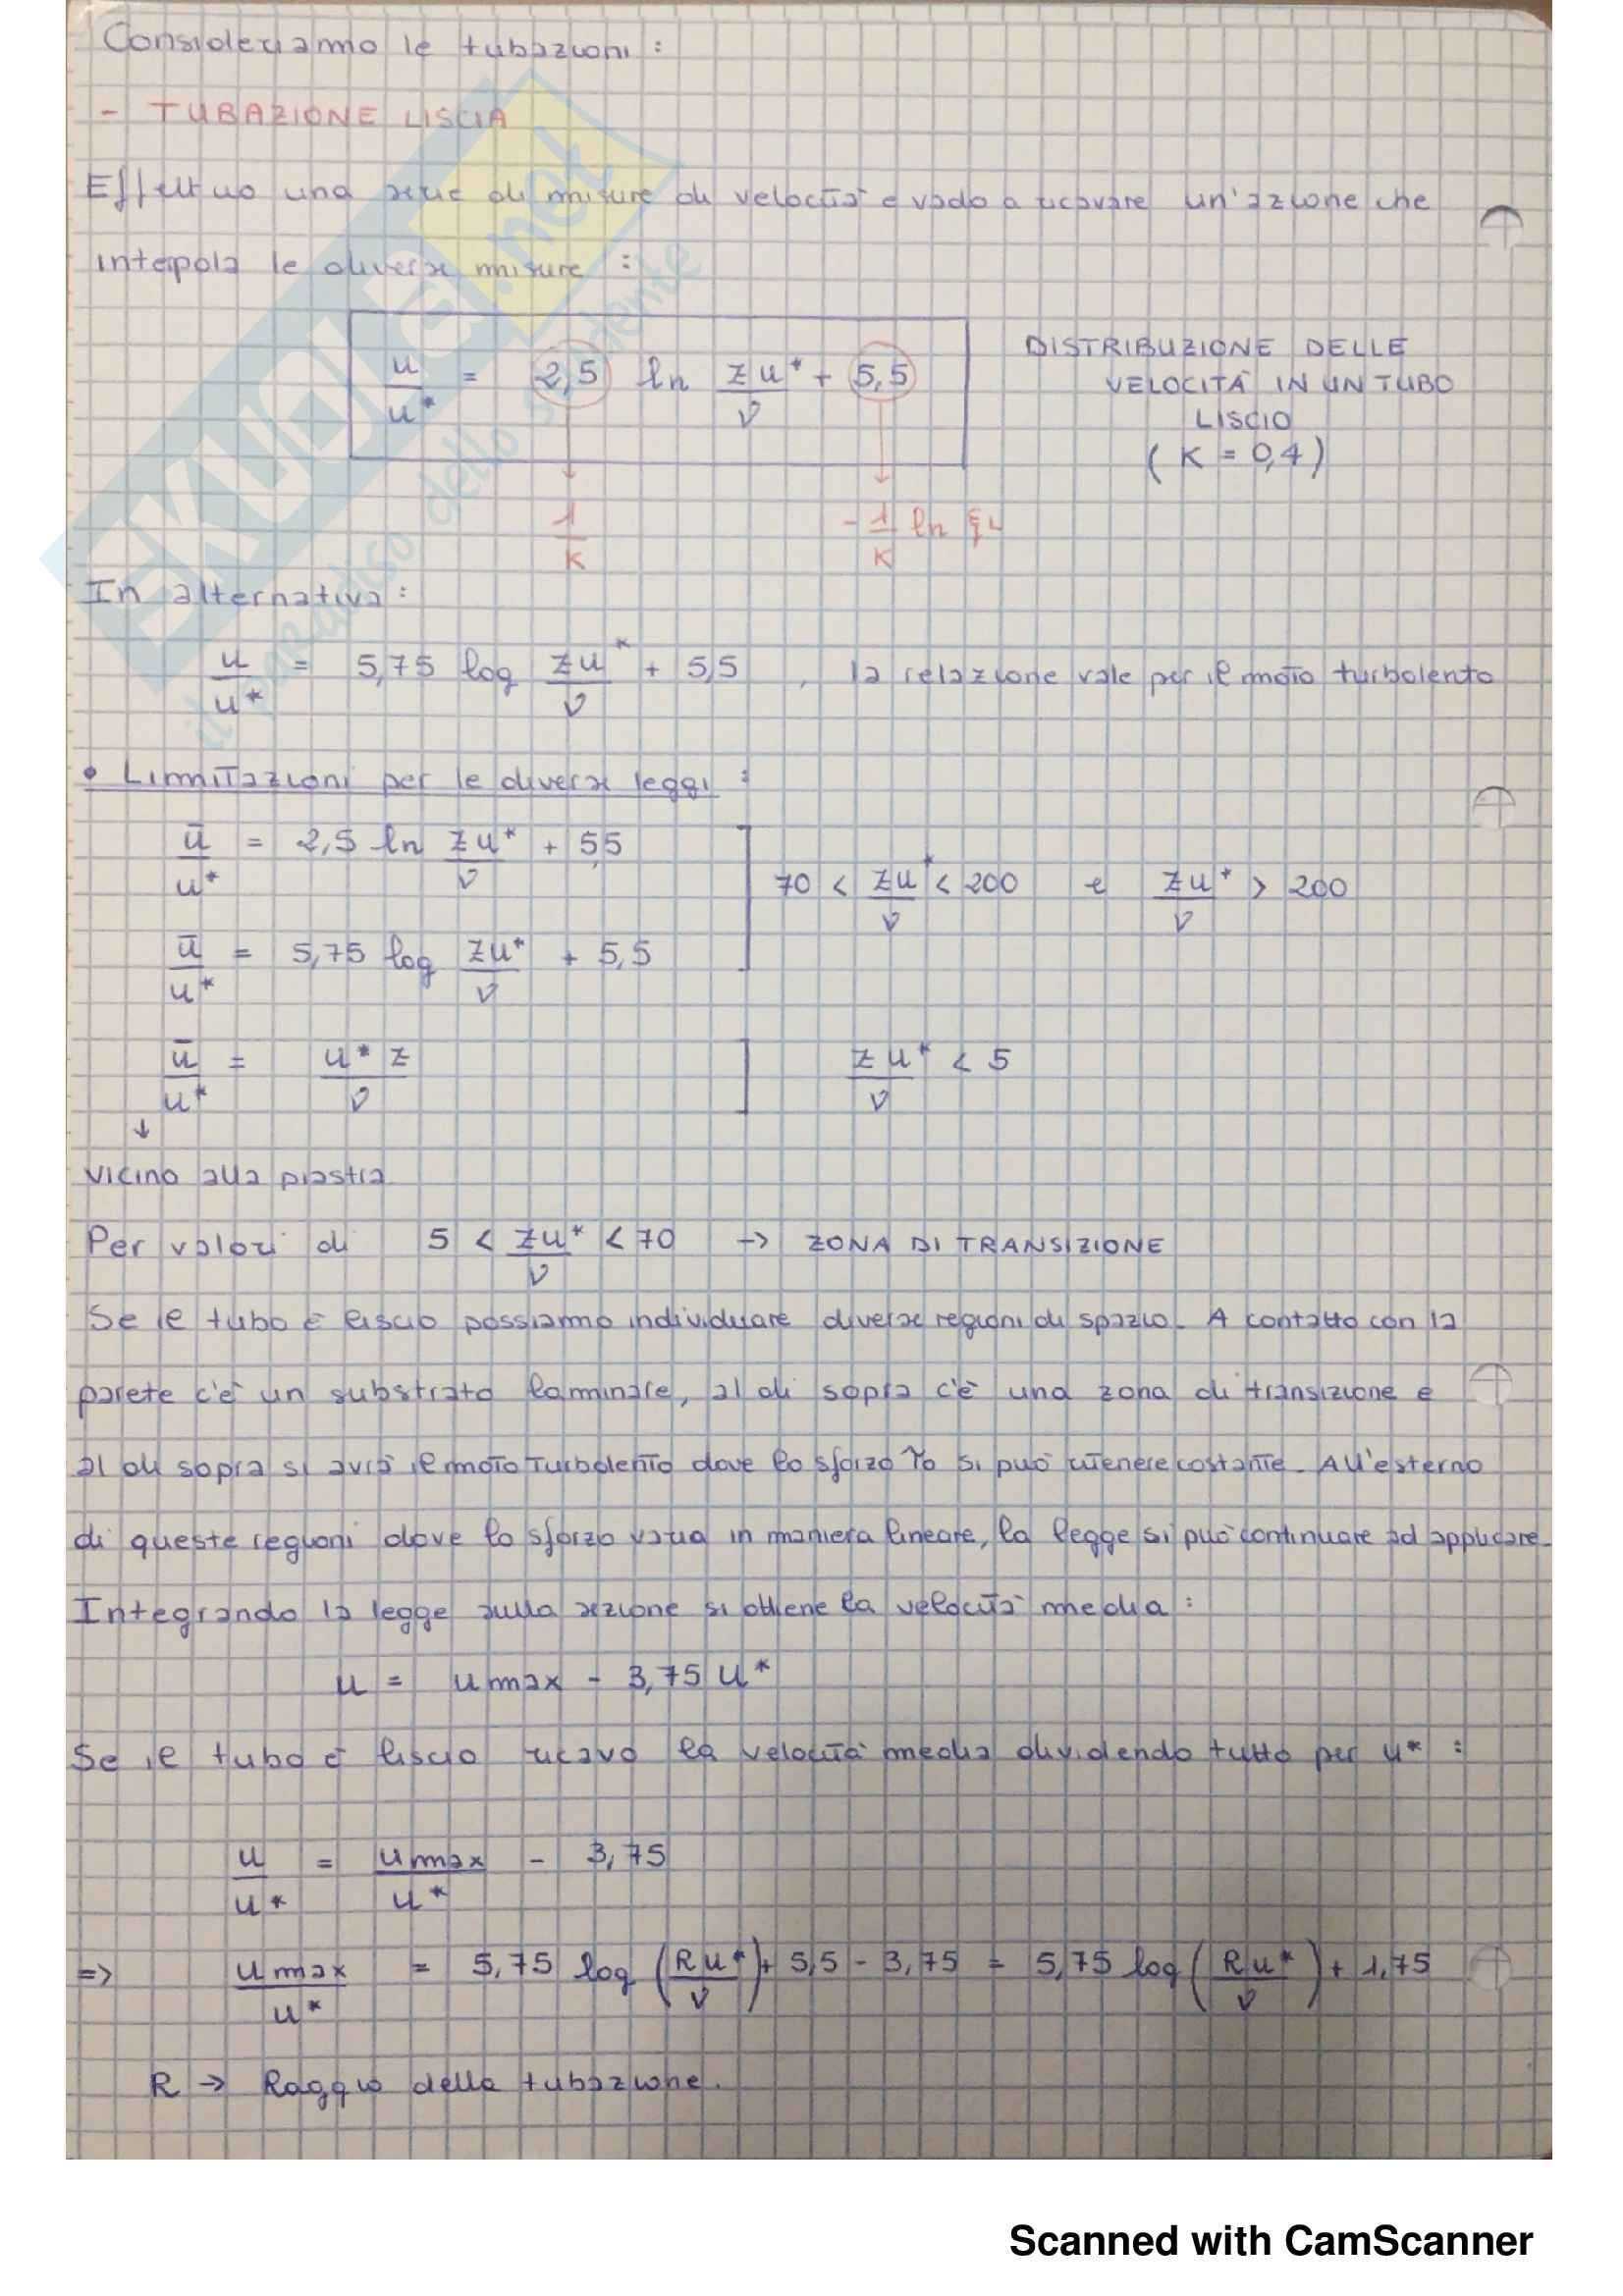 Consideriamo le tubazioni :
- TUBAZIONE LISCIA
Effettuo una serie di misure di velocità e vado a ricavare un'azione che
interpola le diverse misure :
u/u* = 2,5 ln zu*/ν + 5,5
DISTRIBUZIONE DELLE
VELOCITÀ IN UN TUBO
LISCIO
( K = 0,4 )
1/K
- 1/K ln ξL
In alternativa :
u/u* = 5,75 log zu*/ν + 5,5 , la relazione vale per il moto turbolento
• Limitazioni per le diverse leggi :
ū/u* = 2,5 ln zu*/ν + 5,5
70 < zu*/ν < 200 e zu*/ν > 200
ū/u* = 5,75 log zu*/ν + 5,5
ū/u* = u*z/ν
zu*/ν < 5
↓
vicino alla piastra
Per valori di 5 < zu*/ν < 70 → ZONA DI TRANSIZIONE
Se il tubo è liscio possiamo individuare diverse regioni di spazio. A contatto con la
parete c'è un substrato laminare, al di sopra c'è una zona di transizione e
al di sopra si avrà il moto turbolento dove lo sforzo τo si può ritenere costante. All'esterno
di queste regioni dove lo sforzo varia in maniera lineare, la legge si può continuare ad applicare.
Integrando la legge sulla sezione si ottiene la velocità media :
u = umax - 3,75 u*
Se il tubo è liscio ricavo la velocità media dividendo tutto per u* :
u/u* = umax/u* - 3,75
=> umax/u* = 5,75 log (Ru*/ν) + 5,5 - 3,75 = 5,75 log (Ru*/ν) + 1,75
R → Raggio della tubazione.
SKUOLA.net
il paradiso dello studente
Scanned with CamScanner